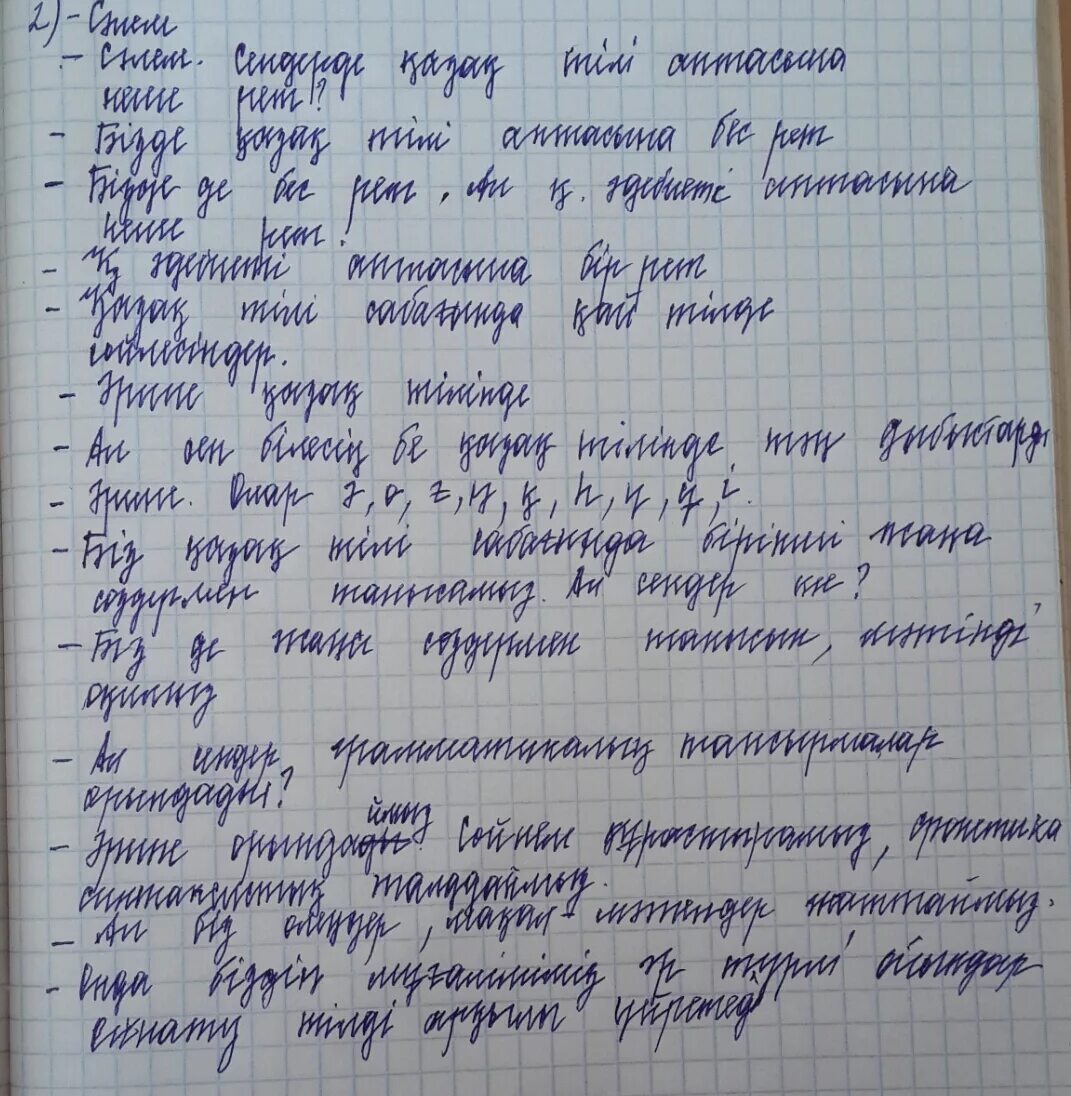 2) - Сәлем
- Сәлем. Сендерде қазақ тілі аптасына
неше рет?
- Бізде қазақ тілі аптасына бес рет
- Бізде де бес рет. Ал қ. әдебиеті аптасына
неше рет?
- Қ әдебиеті аптасына бір рет
- Қазақ тілі сабағында қай тілде
сөйлесіңдер.
- Әрине қазақ тілінде
- Ал сен білесің бе қазақ тілінде тән дыбыстарды
- Әрине. Олар ә, ө, ғ, ң, қ, һ, ү, ұ, і.
- Біз қазақ тілі сабағында бірінші жаңа
сөздермен танысамыз. Ал сендер ше?
- Біз де жаңа сөздермен танысып, мәтінді
оқимыз
- Ал сендер грамматикалық тапсырмалар
орындады?
- Әрине орындаймыз. Сөйлем құрастырамыз, фонетика
синтаксистік талдаймыз.
- Ал біз өлеңдер, мақал-мәтелдер жаттаймыз.
- Онда біздің мұғаліміміз әр түрлі ойындар
ойнату тілді арқылы үйретеді